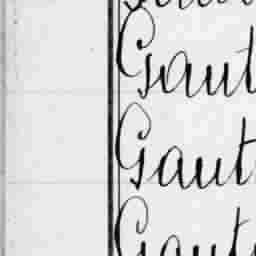 Gaut
Gaut
Gaut